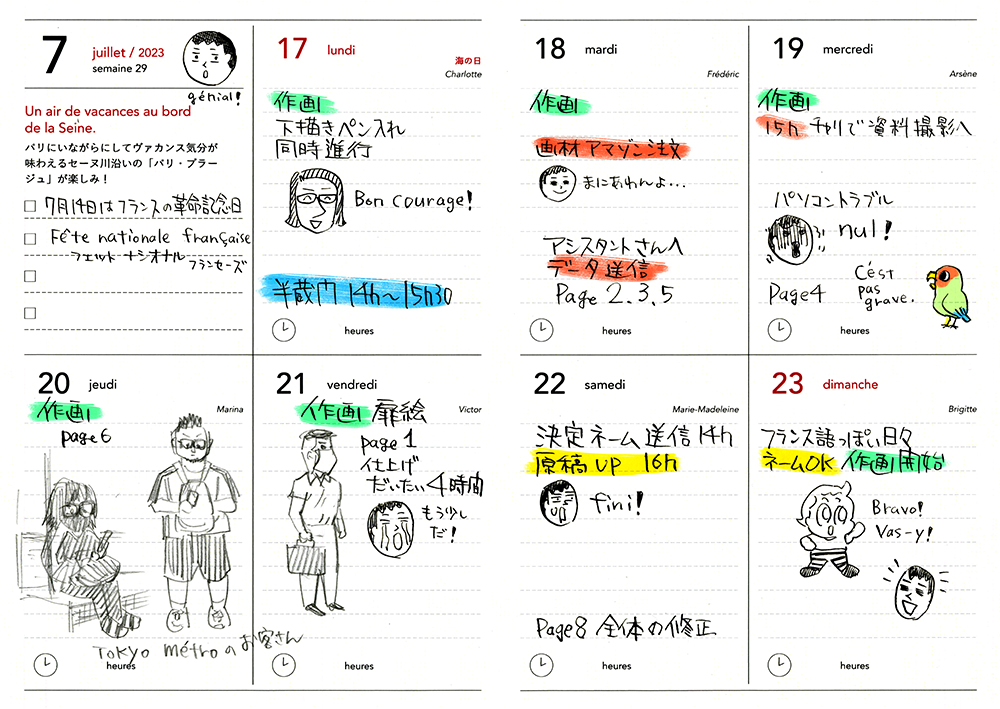 7
juillet / 2023
semaine 29
génial!
Un air de vacances au bord
de la Seine.
パリにいながらにしてヴァカンス気分が
味わえるセーヌ川沿いの「パリ・プラー
ジュ」が楽しみ！
7月14日はフランスの革命記念日
Fête nationale française
フェット ナシオナル フランセーズ
17 lundi
海の日
Charlotte
作画
下描きペン入れ
同時進行
Bon courage!
半蔵門 14h〜15h30
heures
18 mardi
Frédéric
作画
画材アマゾン注文
まにあわんよ...
アシスタントさんへ
データ送信
Page 2.3.5
heures
19 mercredi
Arsène
作画
15h チャリで資料撮影へ
パソコントラブル
nul!
C'ést
pas
grave.
Page4
heures
20 jeudi
Marina
作画
page 6
TOKYO métroのお客さん
heures
21 vendredi
Victor
作画 扉絵
page 1
仕上げ
だいたい4時間
もう少し
だ!
heures
22 samedi
Marie-Madeleine
決定ネーム送信14h
原稿UP 16h
fini!
Page8 全体の修正
heures
23 dimanche
Brigitte
フランス語っぽい日々
ネームOK 作画開始
Bravo!
Vas-y!
heures